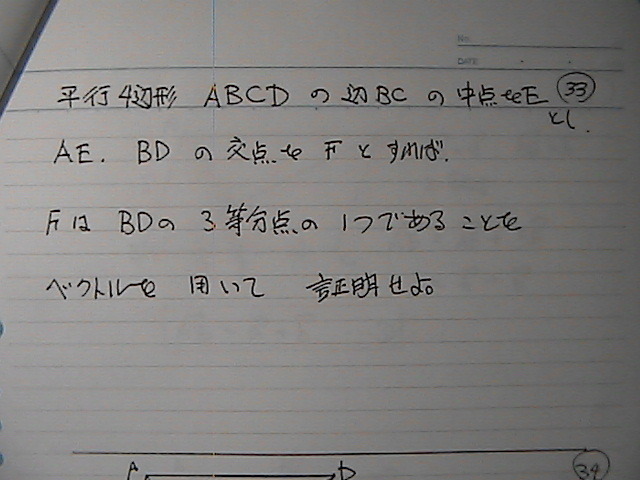 No.
DATE
平行4辺形 ABCD の辺BC の中点をE ㉝
とし.
AE. BD の交点を F とすれば.
F は BDの 3等分点の 1つであることを
ベクトルを 用いて 証明せよ。
A D ㉞